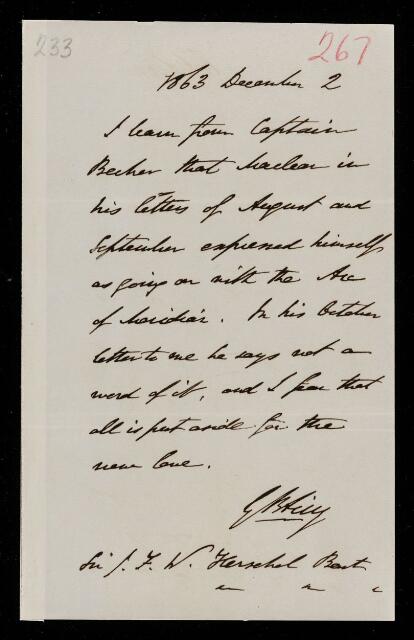 233
267
1863 December 2
I learn from Captain
Becher that Maclear in
his letters of August and
September expressed himself
as going on with the Arc
of Meridian. In his October
letter to me he says not a
word of it, and I fear that
all is put aside for the
new love.
G B Airy
Sir J. F. W. Herschel Bart